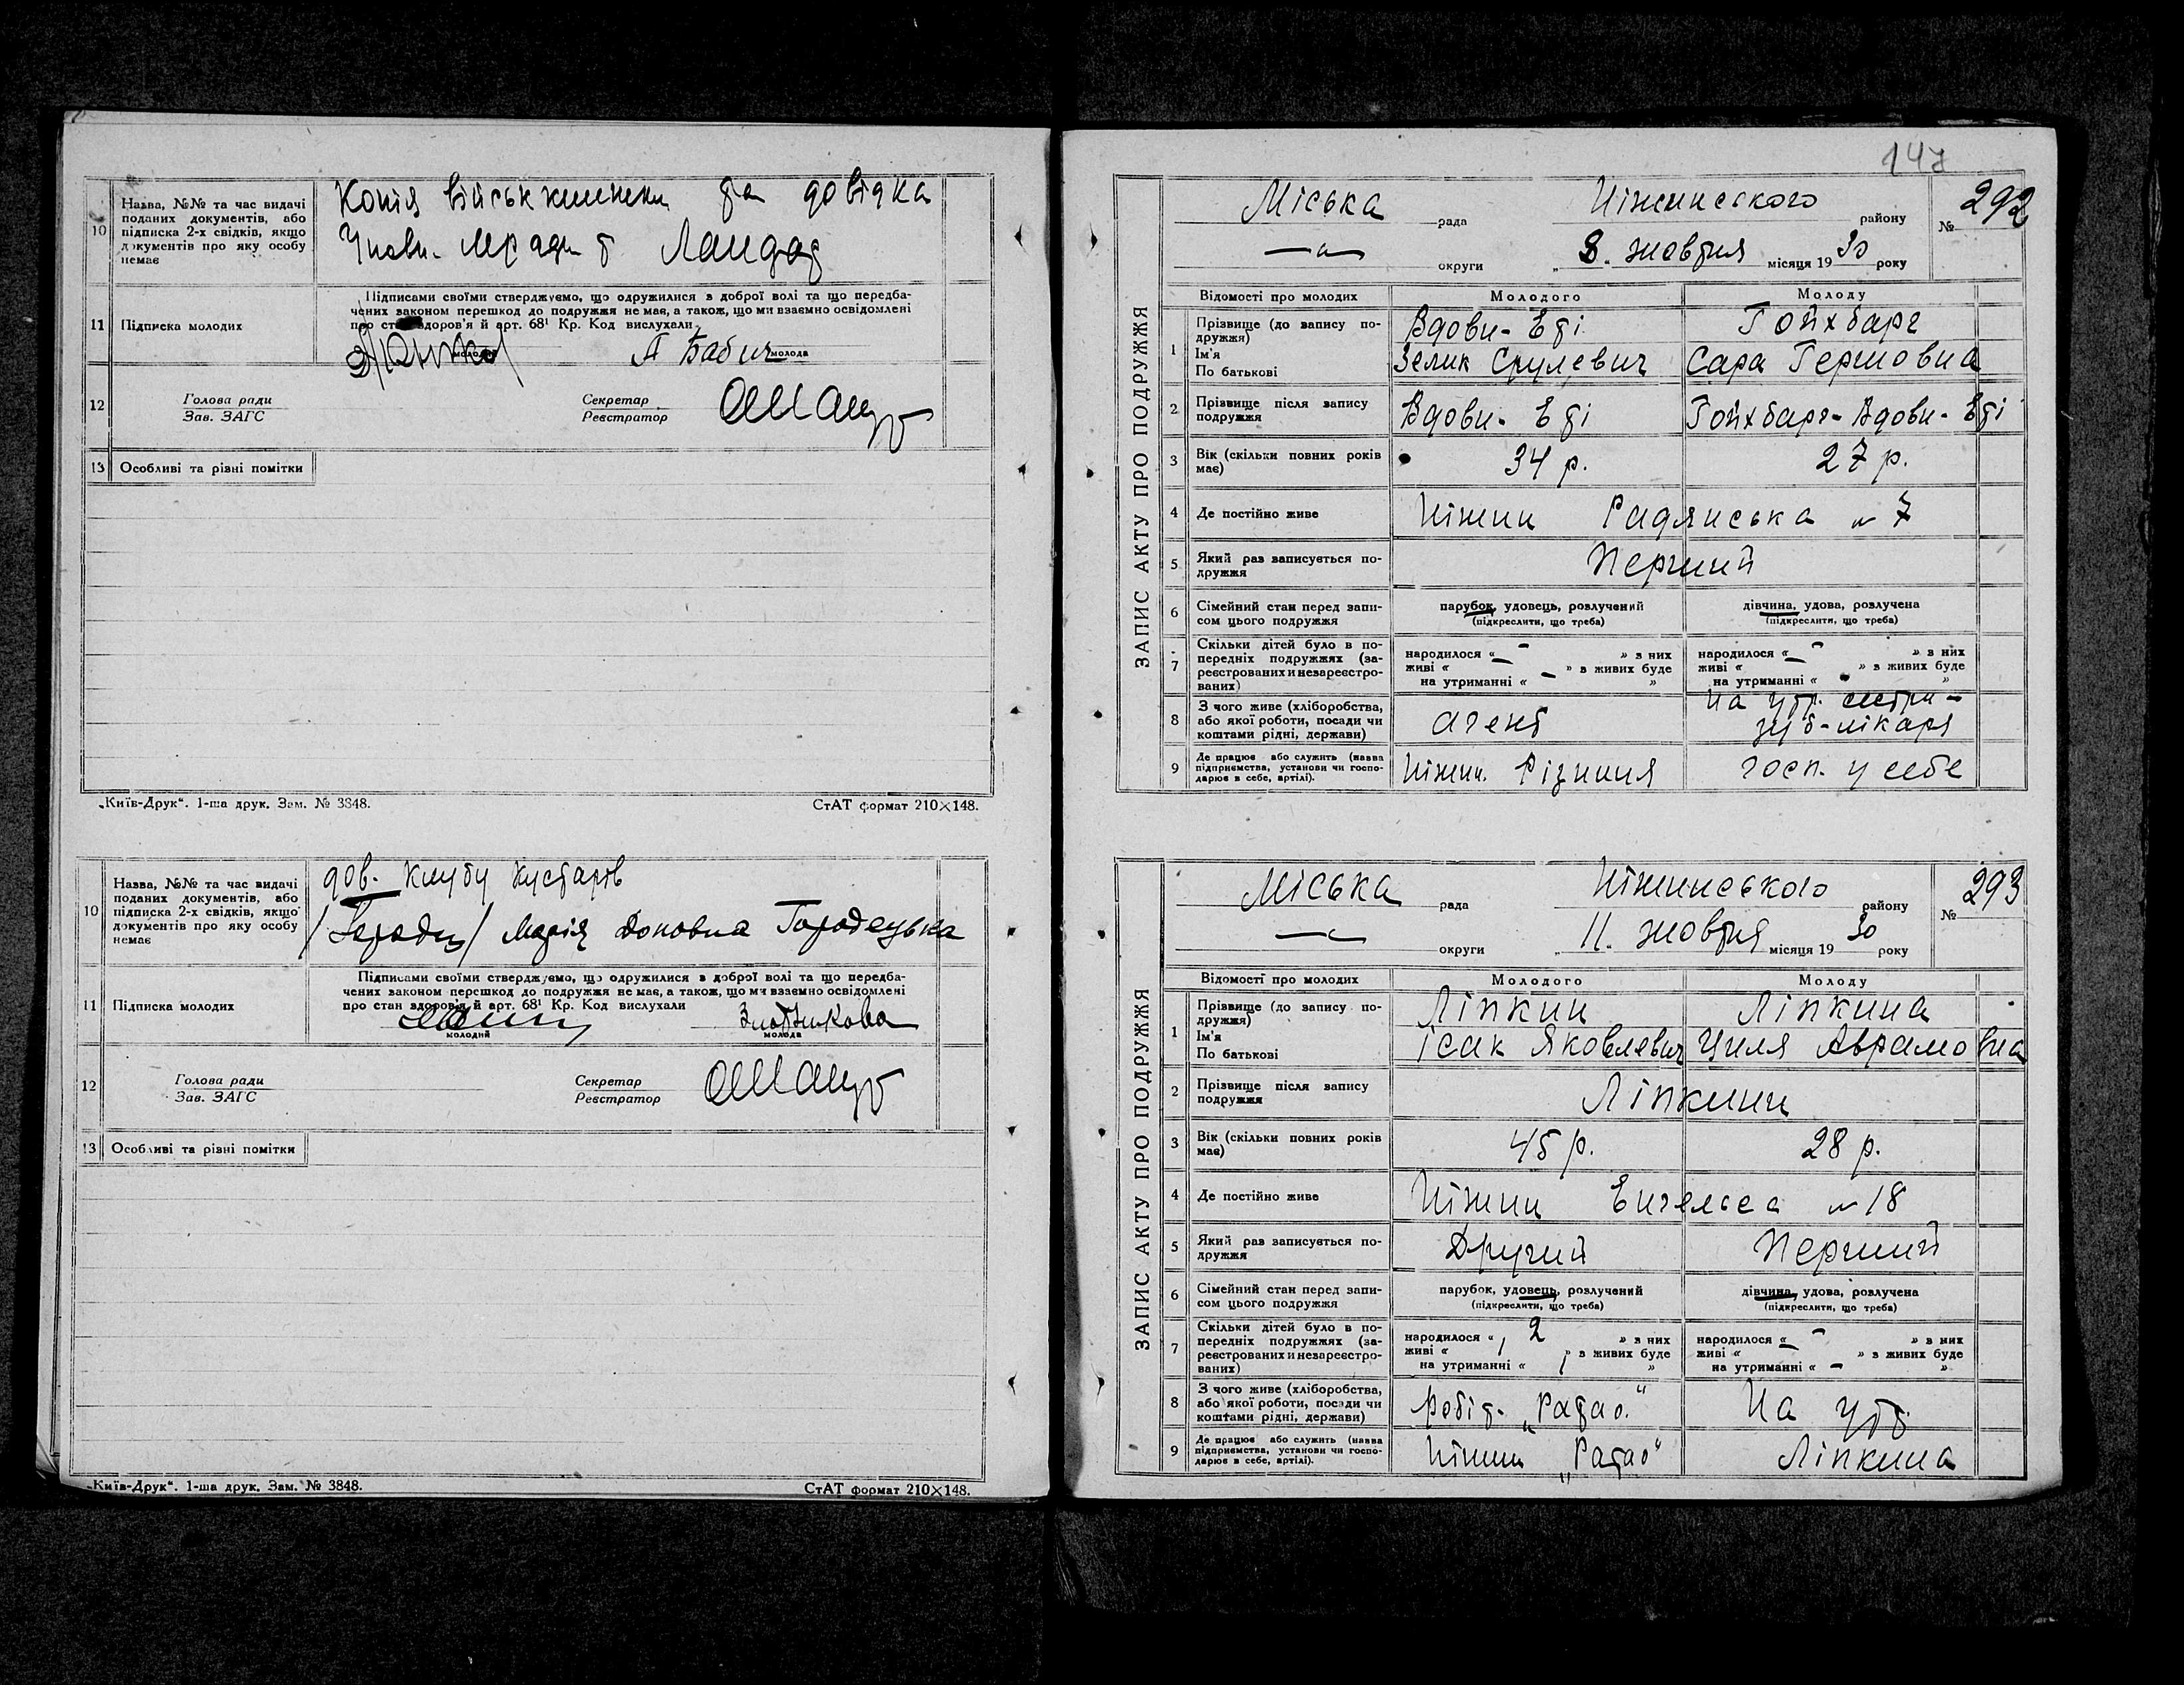 10
Назва, №№ та час видачі
поданих документів, або
підписка 2-х свідків, якщо
документів про яку особу
немає
Копія військкнижки та довідка
Ландат
11
Підписка молодих
Підписами своїми стверджуємо, що одружилися з доброї волі та що передба-
чених законом перешкод до подружжя немає, а також, що ми взаємно освідомлені
про стан здоров'я й арт. 68¹ Кр. Код вислухали
молодий
Бабич
молода
12
Голова ради
Зав. ЗАГС
Секретар
Реєстратор
13
Особливі та різні помітки
„Київ-Друк“. 1-ша друк. Зам. № 3848.
СтАТ формат 210×148.
10
Назва, №№ та час видачі
поданих документів, або
підписка 2-х свідків, якщо
документів про яку особу
немає
дов. клубу кустарів
Марія Городецька
11
Підписка молодих
Підписами своїми стверджуємо, що одружилися в доброї волі та що передба-
чених законом перешкод до подружжя немає, а також, що ми взаємно освідомлені
про стан здоров'я й арт. 68¹ Кр. Код вислухали
молодий
молода
12
Голова ради
Зав. ЗАГС
Секретар
Реєстратор
13
Особливі та різні помітки
„Київ-Друк“. 1-ша друк. Зам. № 3848.
СтАТ формат 210×148.
147
ЗАПИС АКТУ ПРО ПОДРУЖЖЯ
Міська рада Ніжинського району
№ 292
— " — округи „8„ жовтня місяця 1930 року
Відомості про молодих
Молодого
Молоду
1
Прізвище (до запису по-
дружжя)
Вдови-Еті
Гойхбарг
Ім'я
По батькові
Зелик Срулевич
Сара Гершовна
2
Прізвище після запису
подружжя
Вдови-Еті
Гойхбарг-Вдови-Еті
3
Вік (скільки повних років
має)
34 р.
27 р.
4
Де постійно живе
Ніжин Радянська № 7
5
Який раз записується по-
дружжя
Перший
6
Сімейний стан перед запи-
сом цього подружжя
парубок, удовець, розлучений
(підкреслити, що треба)
дівчина, удова, розлучена
(підкреслити, що треба)
7
Скільки дітей було в по-
передніх подружжях (за-
реєстрованих и незареєстро-
ваних)
народилося « – » з них
живі « – » з живих буде
на утриманні « – »
народилося « – » з них
живі « – » з живих буде
на утриманні « »
8
З чого живе (хліборобства,
або якої роботи, посади чи
коштами рідні, держави)
агент
на утр. сестри -
зуб-лікаря
9
Де працює або служить (назва
підприємства, установи чи госпо-
дарює в себе, артілі).
Ніжин. Різниця
госп. у себе
ЗАПИС АКТУ ПРО ПОДРУЖЖЯ
Міська рада Ніжинського району
№ 293
— " — округи „11. жовтня місяця 1930 року
Відомості про молодих
Молодого
Молоду
1
Прізвище (до запису по-
дружжя)
Ліпкин
Ліпкина
Ім'я
По батькові
Ісак Яковлевич
Циля Аврамовна
2
Прізвище після запису
подружжя
Ліпкини
3
Вік (скільки повних років
має)
45 р.
28 р.
4
Де постійно живе
Ніжин Енгельса № 18
5
Який раз записується по-
дружжя
Другий
Перший
6
Сімейний стан перед запи-
сом цього подружжя
парубок, удовець, розлучений
(підкреслити, що треба)
дівчина, удова, розлучена
(підкреслити, що треба)
7
Скільки дітей було в по-
передніх подружжях (за-
реєстрованих и незареєстро-
ваних)
народилося « 2 » з них
живі « 1 » з живих буде
на утриманні « 1 »
народилося « – » з них
живі « – » з живих буде
на утриманні « – »
8
З чого живе (хліборобства,
або якої роботи, посади чи
коштами рідні, держави)
Робіт. „Ратао“
На утр.
9
Де працює або служить (назва
підприємства, установи чи госпо-
дарює в себе, артілі).
Ніжин „Ратао“
Ліпкина